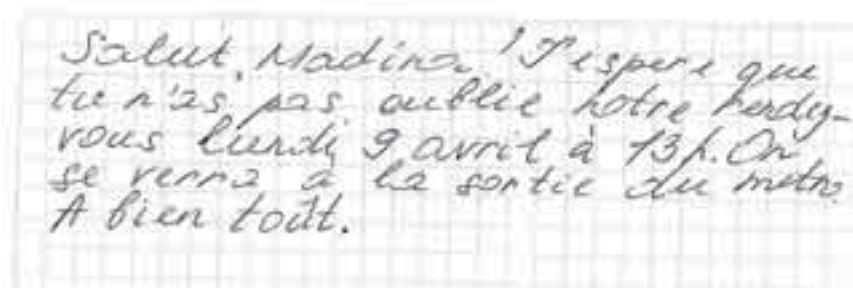 Salut, Madina! J'espere que
tu n'as pas oublié notre rendez-
vous lundi, 9 avril à 13h. On
se verra a la sortie du métro.
A bien toût.